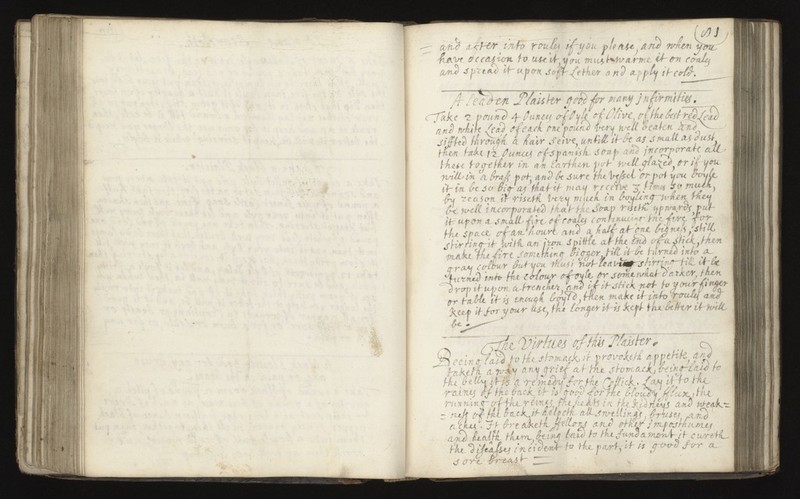 (81
= and after into roules if you please, and when you
have occasion to use it, you must warme it on coales
and spread it upon soft Lether and apply it cold.
A Leaden Plaister good for many Infirmities.
Take 2 pound 4 Ounces of Oyle of Olive, of the best red Lead
and white Lead of each one pound very well beaten and
siffted through a hair seive, untill it be as small as dust
then take 12 Ounces of spanish soap and incorporate all
these together in an Earthen pot well glazed, or if you
will in a brass pot, and be sure the vessel or pot you boyle
it in be so Big as that it may receive 3 times so much,
by reason it riseth very much in boyling when they
be well incorporated that the Soap riseth upwards put
it upon a small fire of coales continueing the fire for
the space of an houre and a half at one bignes, still
stirring it with an iron spittle at the End of a stick, then
make the fire something Bigger, till it be turned into a
gray colour but you must not leave stirring till it be
turned into the colour of oyle or somewhat darker, then
drop it upon a trencher, and if it stick not to your finger
or table it is enough boyl'd, then make it into roules and
keep it for your use, the longer it is kept the better it will
be.
The Virtues of this Plaister.
Beeing laid to the stomack, it provoketh appetite, and
taketh a way any grief at the stomack, being laid to
the belly it is a remedy for the Collick. Lay it to the
raines of the back it is good for the bloudy fflux, the
running of the reines, the heats in the kidneys and weak=
=ness of the back, it helpeth all swellings, bruises, and
aches. It breaketh fellons and other imposthumes
and healeth them, being laid to the fundament it cureth
the diseases incident to the part, it is good for a
sore Breast